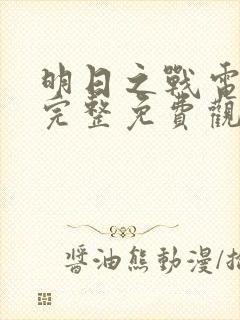 明日之戰電
完整免費觀
醬油熊動漫/